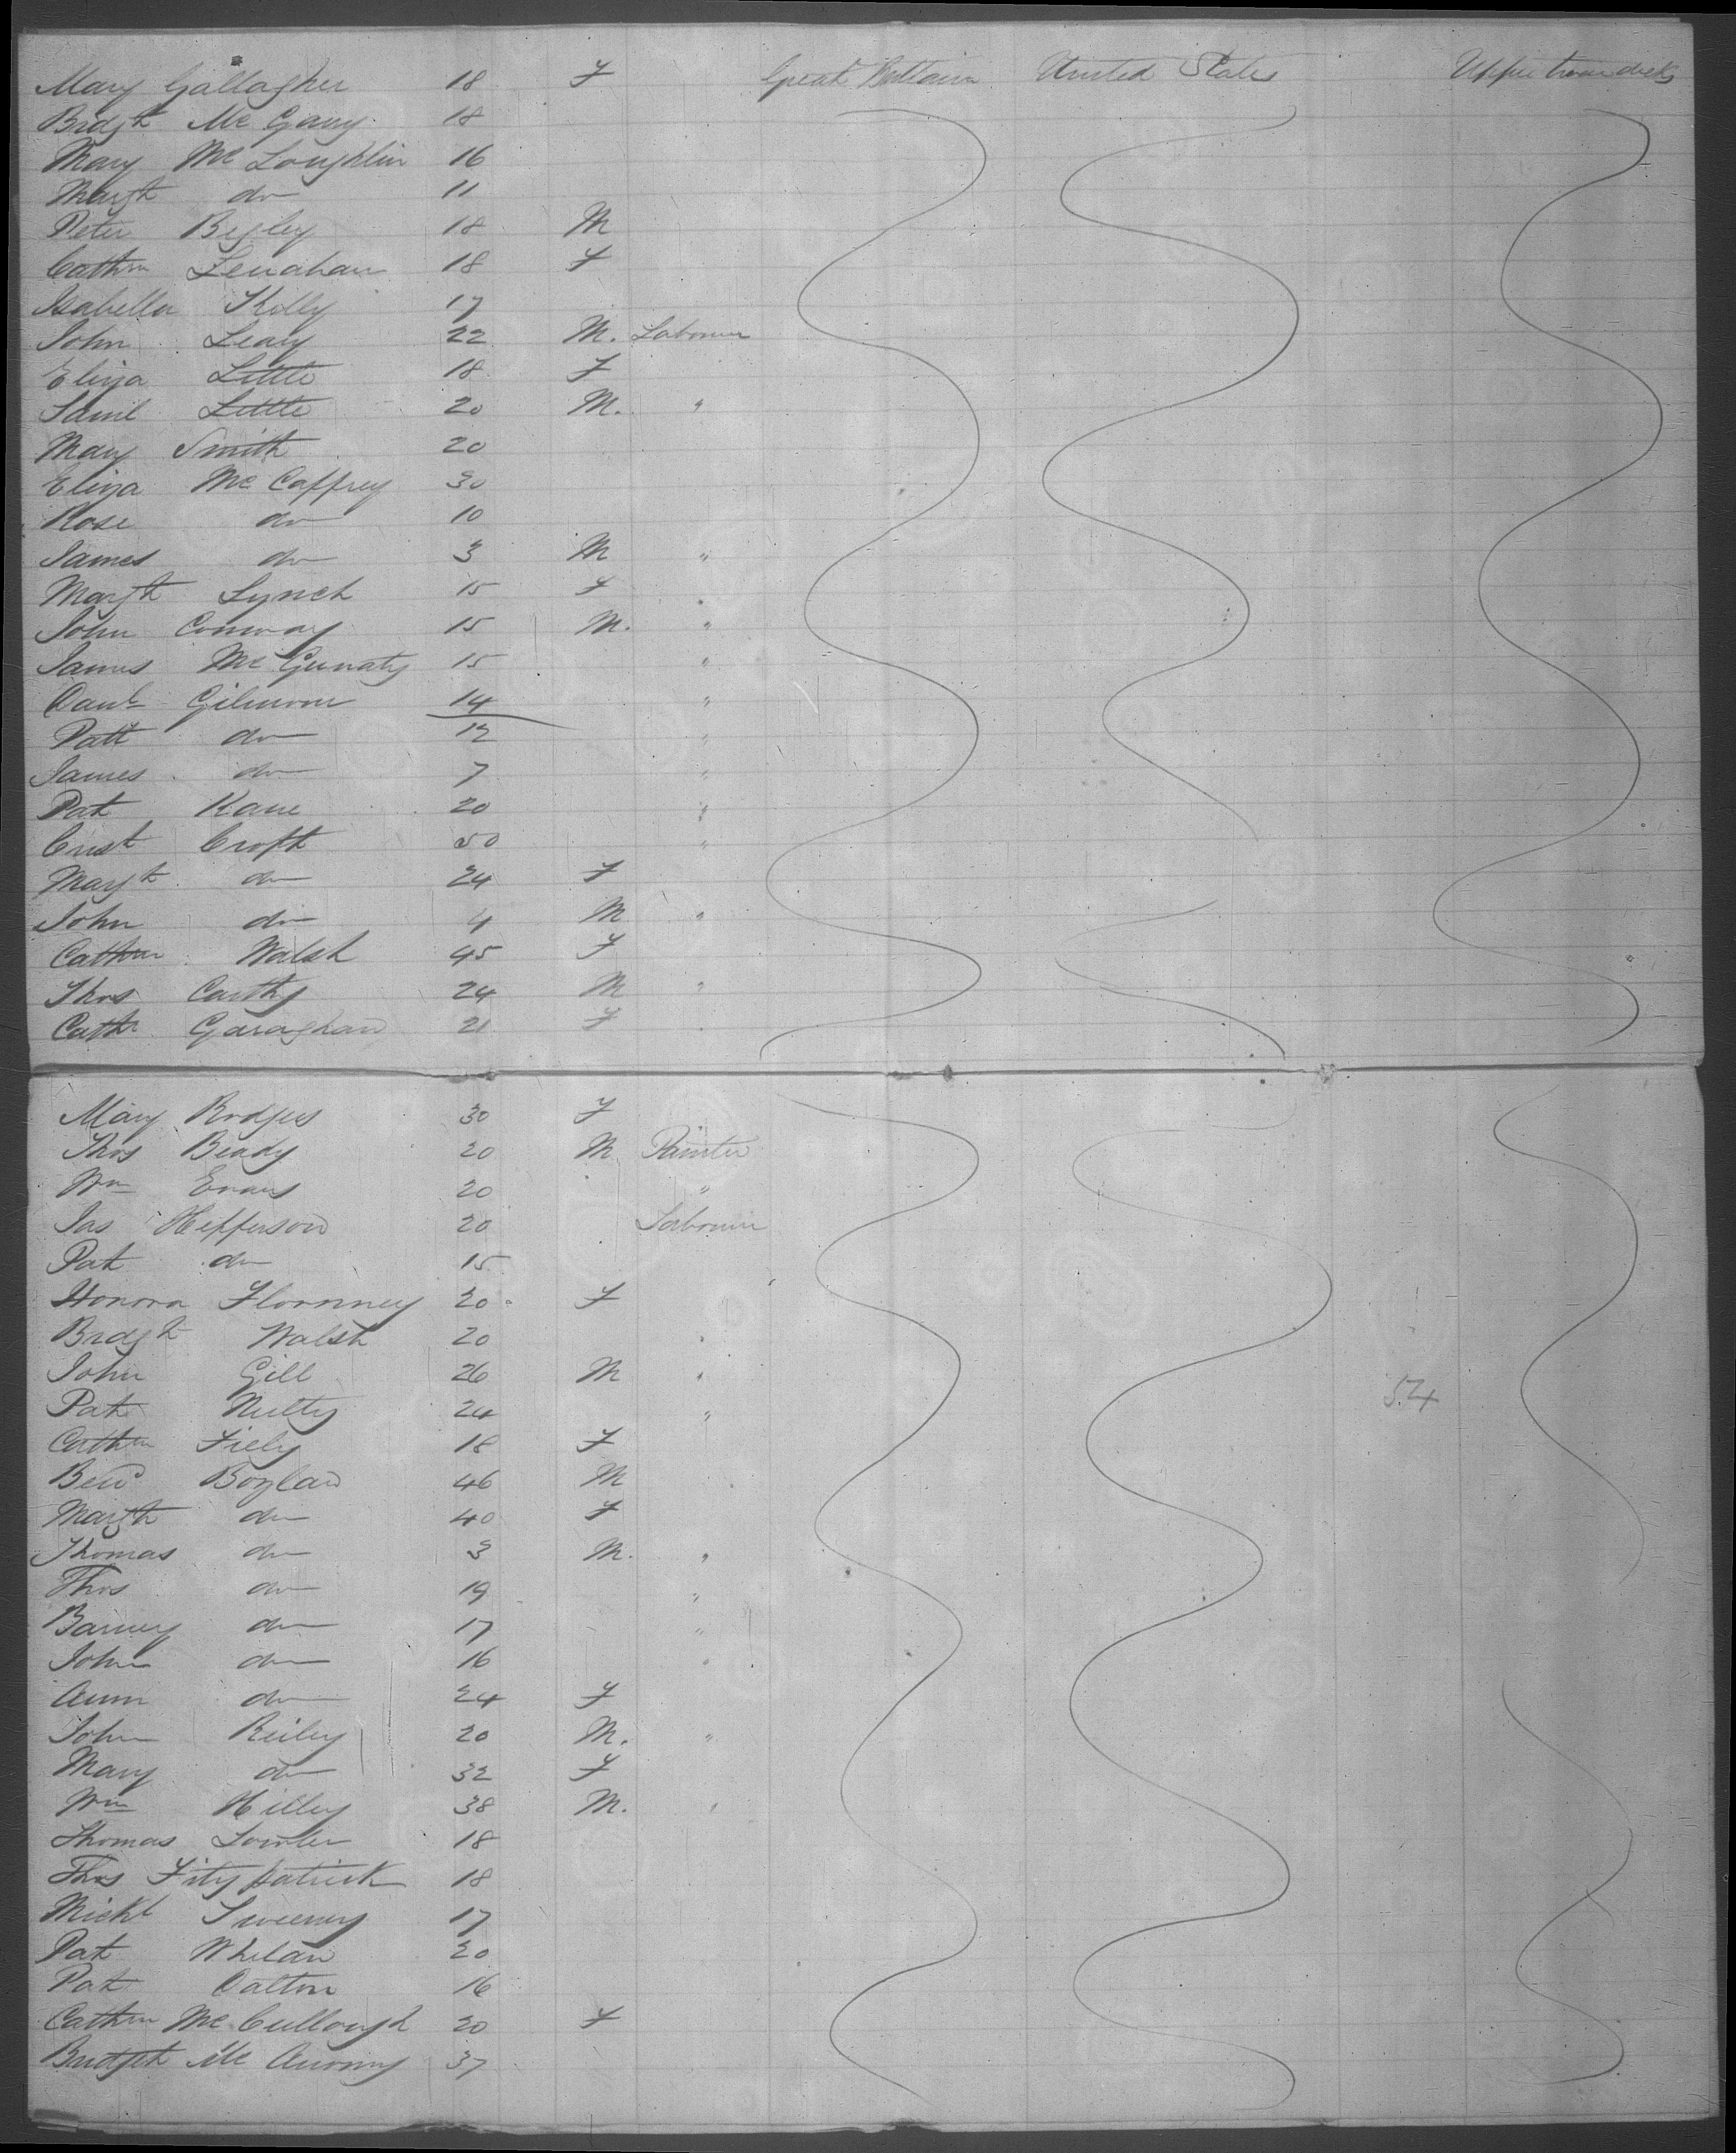 Mary Gallagher 18 F Great Brittain United States Upper tween decks
Brdgt Mc Garry 18
Mary Mc Loughlin 16
Margt do 11
Peter Begley 18 M
Cathrn Lenahan 18 F
Isabella Kolly 17
John Leary 22 M. Labourer
Eliza Little 18 F
Saml Little 20 M. "
Mary Smith 20
Eliza Mc Caffrey 30
Rose do 10
James do 3 M "
Margt Lynch 15 F "
John Conway 15 M. "
James Mc 15 "
Danl Gilmour 14 "
Patt do 12 "
James do 7 "
Pat Kane 20 "
Crist Croft 50 "
Margt do 24 F
John do 4 M "
Cathrn Walsh 45 F
Thos Carthy 24 M "
Cathr Garaghan 21 F
Mary Rodgers 30 F
Thos Beady 20 M Painter
Wm Evans 20 "
Jas Hefferson 20 Labourer
Pat do 15
Honora 20 F
Brdgt Walsh 20 "
John Gill 26 M "
Pat Nulty 24 "
Cathrn Fiely 18 F
Bend Boylan 46 M
Margt do 40 F
Thomas do 3 M. "
Thos do 19 "
Barney do 17 "
John do 16 "
Ann do 24 F
John Reiley 20 M. "
Mary do 32 F
Wm Hilley 38 M. "
Thomas Lawler 18
Thos Fitzpatrick 18
Michl Sweeney 17
Pat Whelan 20
Pat Dalton 16
Cathrn Mc Cullough 20 F
Bridget Mc 37
54